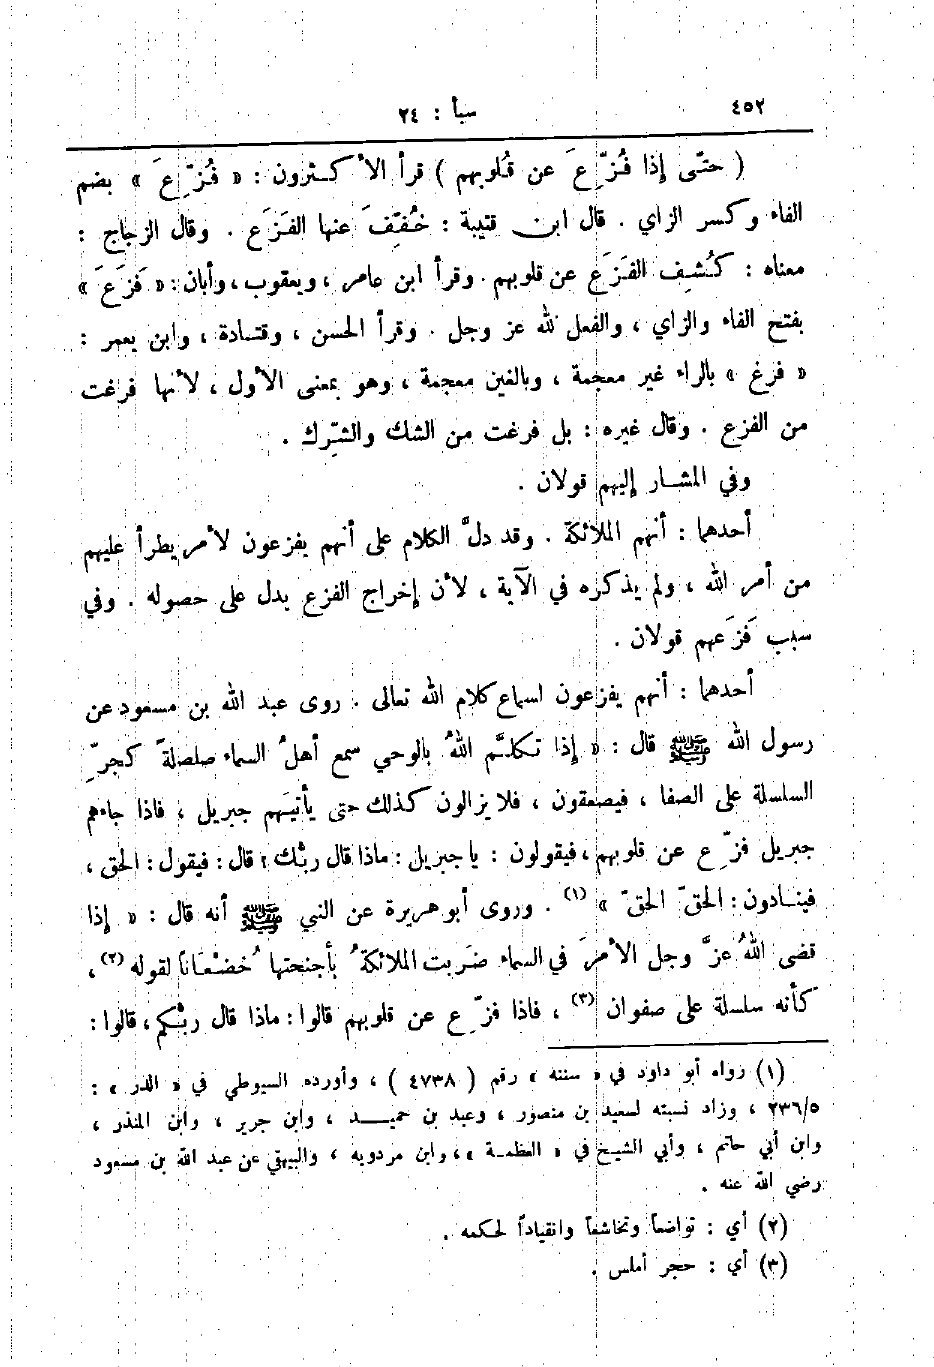 ٤٥٢
سبأ : ٢٤
( حتّى إذا فُزِّعَ عن قُلوبهم ) قرأ الأكثرون : « فُزِّعَ » بضم
الفاء وكسر الزاي . قال ابن قتيبة : خُفِّفَ عنها الفَزَع . وقال الزجاج :
معناه : كُشِف الفَزَع عن قلوبهم . وقرأ ابن عامر ، ويعقوب ، وأبان : « فَزَعَ »
بفتح الفاء والزاي ، والفعل لله عز وجل . وقرأ الحسن ، وقتادة ، وابن يعمر :
« فرغ » بالراء غير معجمة ، وبالغين معجمة ، وهو بمعنى الأول ، لأنها فرغت
من الفزع . وقال غيره : بل فرغت من الشك والشِّرك .
وفي المشار إليهم قولان .
أحدهما : أنهم الملائكة . وقد دلَّ الكلام على أنهم يفزعون لأمر يطرأ عليهم
من أمر الله ، ولم يذكره في الآية ، لأن إخراج الفزع يدل على حصوله . وفي
سبب فَزَعهم قولان .
أحدهما : أنهم يفزعون لسماع كلام الله تعالى . روى عبد الله بن مسعود عن
رسول الله ﷺ قال : « إذا تكلَّم اللهُ بالوحي سمع أهلُ السماء صلصلةً كجرِّ
السلسلة على الصفا ، فيصعقون ، فلا يزالون كذلك حتى يأتيَهم جبريل ، فاذا جاءهم
جبريل فزِّع عن قلوبهم ، فيقولون : يا جبريل : ماذا قال ربُّك ؟ قال : فيقول : الحق ،
فينادون : الحقّ الحقّ » (١) . وروى أبو هريرة عن النبي ﷺ أنه قال : « إذا
قضى اللهُ عزَّ وجل الأمرَ في السماء ضَربت الملائكةُ بأجنحتها خُضْعَاناً لقوله (٢) ،
كأنه سلسلة على صفوان (٣) ، فاذا فزِّع عن قلوبهم قالوا : ماذا قال ربُّكم ، قالوا :
(١) رواه أبو داود في « سننه » رقم ( ٤٧٣٨ ) ، وأورده السيوطي في « الدر » :
٢٣٦/٥ ، وزاد نسبته لسعيد بن منصور ، وعبد بن حميد ، وابن جرير ، وابن المنذر ،
وابن أبي حاتم ، وأبي الشيخ في « العظمة » ، وابن مردويه ، والبيهقي عن عبد الله بن مسعود
رضي الله عنه .
(٢) أي : تواضعاً وتخاشعاً وانقياداً لحكمه .
(٣) أي : حجر أملس .